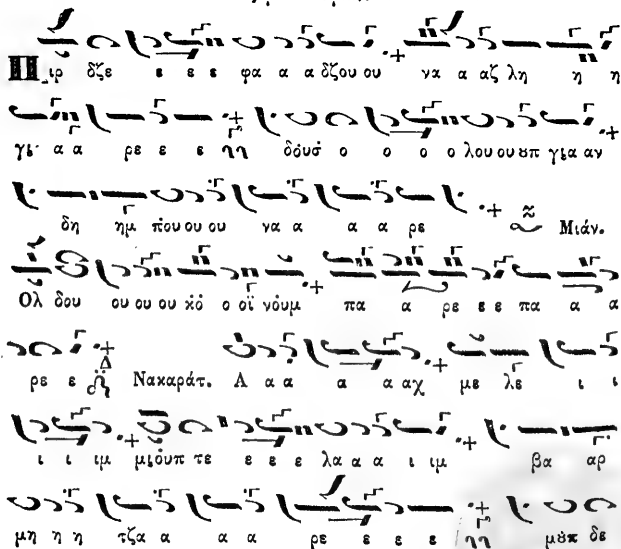 Πιρ δζε ε ε ε φα α α δζου ου να α αζ λη η η
γι α α ρε ε ε δόυσ̓ ο ο ο ο λου ου ουπ για αν
δη ημ που ου ου να α α α ρε Μιάν.
Ολ δου ου ου ου κὸ ο οϊ νούμ πα α ρε ε ε πα α α
ρε ε Νακαράτ. Α α α α α αχ με λε ι ι
ι ι ιμ μιούπ τε ε ε ε λα α α ι ιμ βα αρ
μη η η τζα α α α ρε ε ε ε μουπ δε